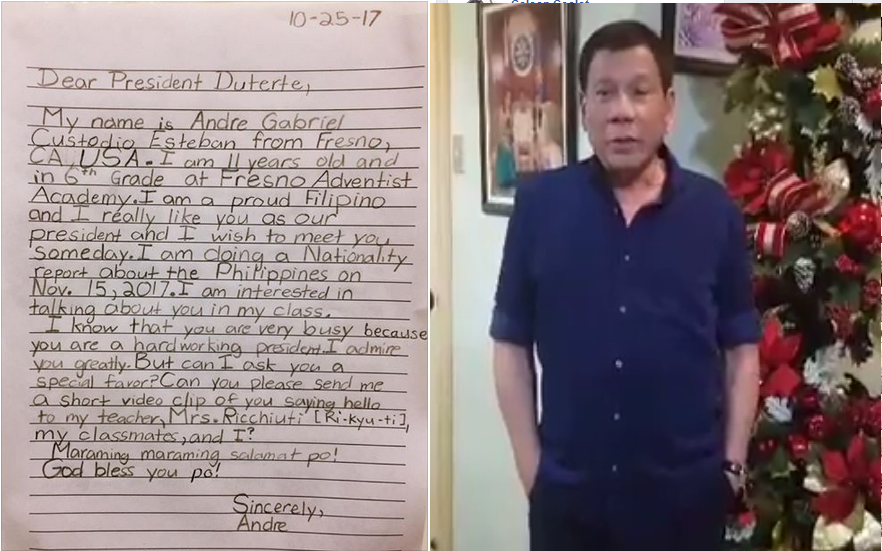 10-25-17
Dear President Duterte,
My name is Andre Gabriel
Custodio Esteban from Fresno,
CA, USA. I am 11 years old and
in 6th Grade at Fresno Adventist
Academy. I am a proud Filipino
and I really like you as our
president and I wish to meet you
Someday. I am doing a Nationality
report about the Philippines on
Nov. 15, 2017. I am interested in
talking about you in my class.
I know that you are very busy because
you are a hardworking president. I admire
you greatly. But can I ask you a
special favor? Can you please send me
a short video clip of you saying hello
to my teacher, Mrs. Ricchiuti [Ri-kyu-ti],
my classmates, and I?
Maraming maraming salamat po!
God bless you po!
Sincerely,
Andre